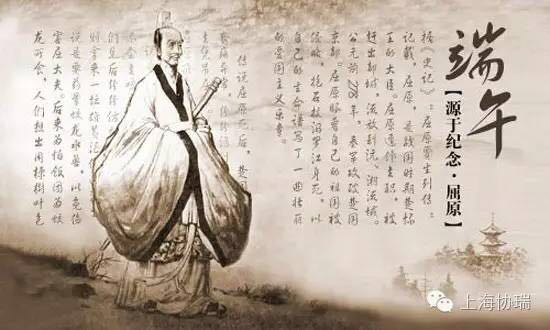 端午
【源于纪念·屈原】
据《史记》:屈原贾生列传:
记载,屈原,是战国时期楚怀
王的大臣。屈原遭馋去职,被
赶出都城,流放到沅、湘流域。
公元前278年,秦军攻破楚国
京都。屈原眼看自己的祖国被
侵略,抱石投汨罗江身死,以
自己的生命谱写了一曲壮丽
的爱国主义乐章。
传说屈原死后,楚国
们见后纷纷仿
则拿来一坛雄黄酒
说是要药晕蛟龙水兽,以免伤
害屈大夫。后来为怕饭团为蛟
龙所食,人们想出用楝树叶包
上海协瑞